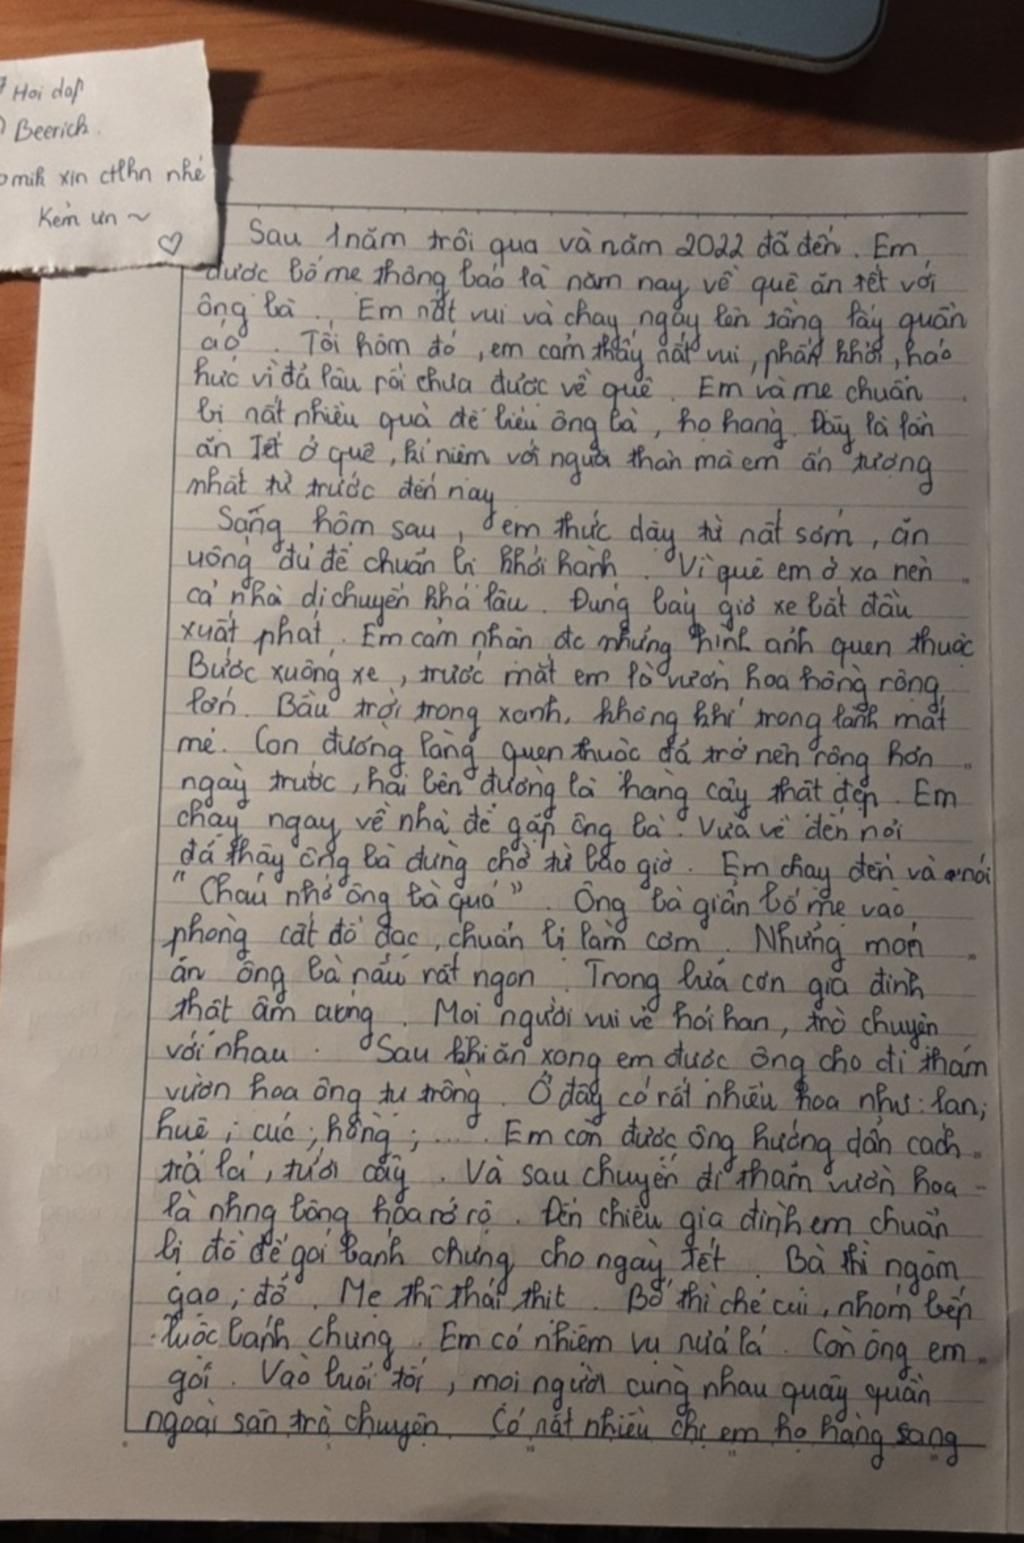 Hoi dap
Beerich
mik xin ctlhn nhé
Kem ưn ~
Sau 1 năm trôi qua và năm 2022 đã đến. Em
được bố mẹ thông báo là năm nay về quê ăn tết với
ông bà. Em nất vui và chạy ngay lên tầng lấy quần
áo. Tối hôm đó, em cảm thấy nất vui, phấn khởi, háo
hức vì đã lâu rồi chưa được về quê. Em và mẹ chuẩn
bị nất nhiều quà để biếu ông bà, họ hàng. Đây là lần
ăn Tết ở quê, kỉ niệm với người thân mà em ấn tượng
nhất từ trước đến nay
Sáng hôm sau, em thức dậy từ nất sớm, ăn
uống đủ để chuẩn bị khởi hành. Vì quê em ở xa nên
cả nhà di chuyển khá lâu. Đúng bảy giờ xe bắt đầu
xuất phát. Em cảm nhận đc những hình ảnh quen thuộc
Bước xuống xe, trước mắt em là vườn hoa hồng rộng
lớn. Bầu trời trong xanh, không khí trong lành mát
mẻ. Con đường làng quen thuộc đã trở nên rộng hơn
ngày trước, hai bên đường là hàng cây thật đẹp. Em
chạy ngay về nhà để gặp ông bà. Vừa về đến nơi
đã thấy ông bà đứng chờ từ bao giờ. Em chạy đến và nói
"Cháu nhớ ông bà quá". Ông bà giần bố mẹ vào
phòng cất đồ đạc, chuẩn bị làm cơm. Những món
ăn ông bà nấu rất ngon. Trong bữa cơn gia đình
thật ấm cúng. Mọi người vui vẻ hỏi han, trò chuyện
với nhau. Sau khi ăn xong em được ông cho đi thăm
vườn hoa ông tự trồng. Ở đây có rất nhiều hoa như: lan;
huệ; cúc; hồng; ..... Em còn được ông hướng dẫn cách
trả lá, tưới cây. Và sau chuyến đi thăm vườn hoa
là nhng bông hoa rớ rộ. Đến chiều gia đình em chuẩn
bị đồ để gói bánh chưng cho ngày tết. Bà thì ngâm
gạo; đỗ. Mẹ thì thái thịt. Bố thì chẻ củi, nhóm bếp
luộc bánh chưng. Em có nhiệm vụ nửa lá. Còn ông em
gói. Vào buổi tối, mọi người cùng nhau quây quần
ngoài sân trò chuyện. Có nất nhiều chị em họ hàng sang